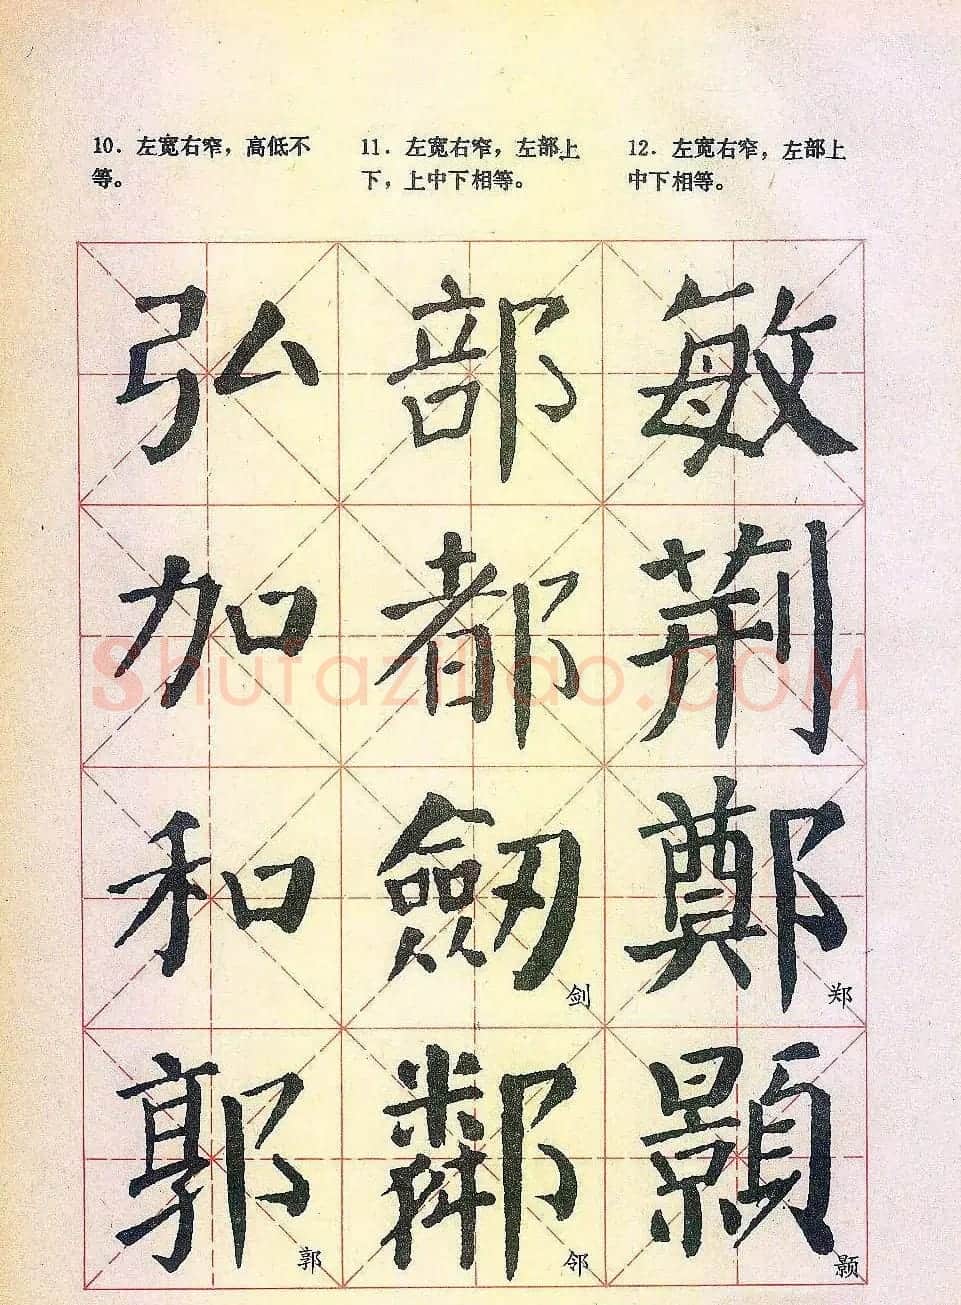 10. 左宽右窄，高低不
等。
11. 左宽右窄，左部上
下，上中下相等。
12. 左宽右窄，左部上
中下相等。
弘 部 敏
加 都 荆
Shufaziliao.COM
和 劒 鄭
剑 郑
郭 鄰 顥
郭 邻 颢